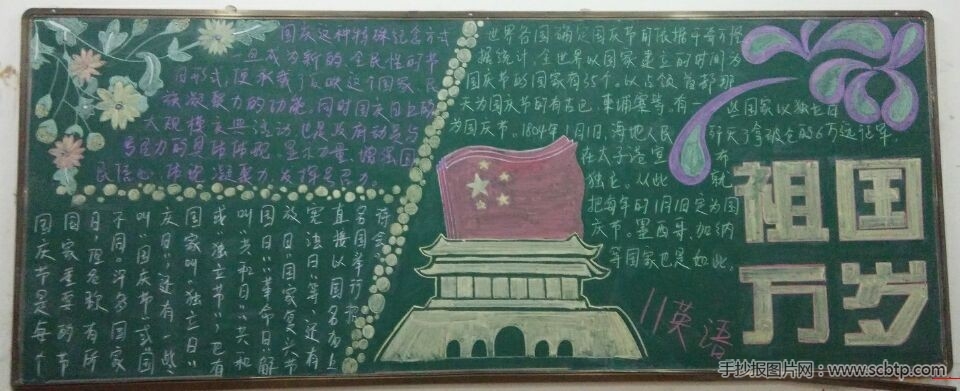 国庆这种特殊纪念方式
旦成为新的、全民性的节
日形式,便承载了反映这个国家、民
族凝聚力的功能。同时国庆日上的
大规模庆典活动,也是政府动员与
号召力的具体体现。显示力量、增强国
民信心,体现凝聚力,发挥号召力。
世界各国确定国庆节的依据千奇百怪
据统计,全世界以国家建立的时间为
国庆节的国家有35个。以占领首都那
天为国庆节的有古巴、柬埔寨等。有一些国家以独立日
为国庆节。1804年1月1日,海地人民歼灭了拿破仑的6万远征军
在太子港宣布
独立。从此就
把每年的1月1日定为国
庆节。墨西哥、加纳
等国家也是如此。
国庆节是每个
国家重要的节
日,但名称有所
不同。许多国家
叫“国庆节”或“国
庆日”,还有一些
国家叫“独立日”
或“独立节”,也有
叫“共和日”“共和
国日”“革命日”“解
放日”“国家复兴节”
宪法日”等,还有
直接以国名加上
祖国
万岁
11英语
手抄报图片网:www.scbtp.com